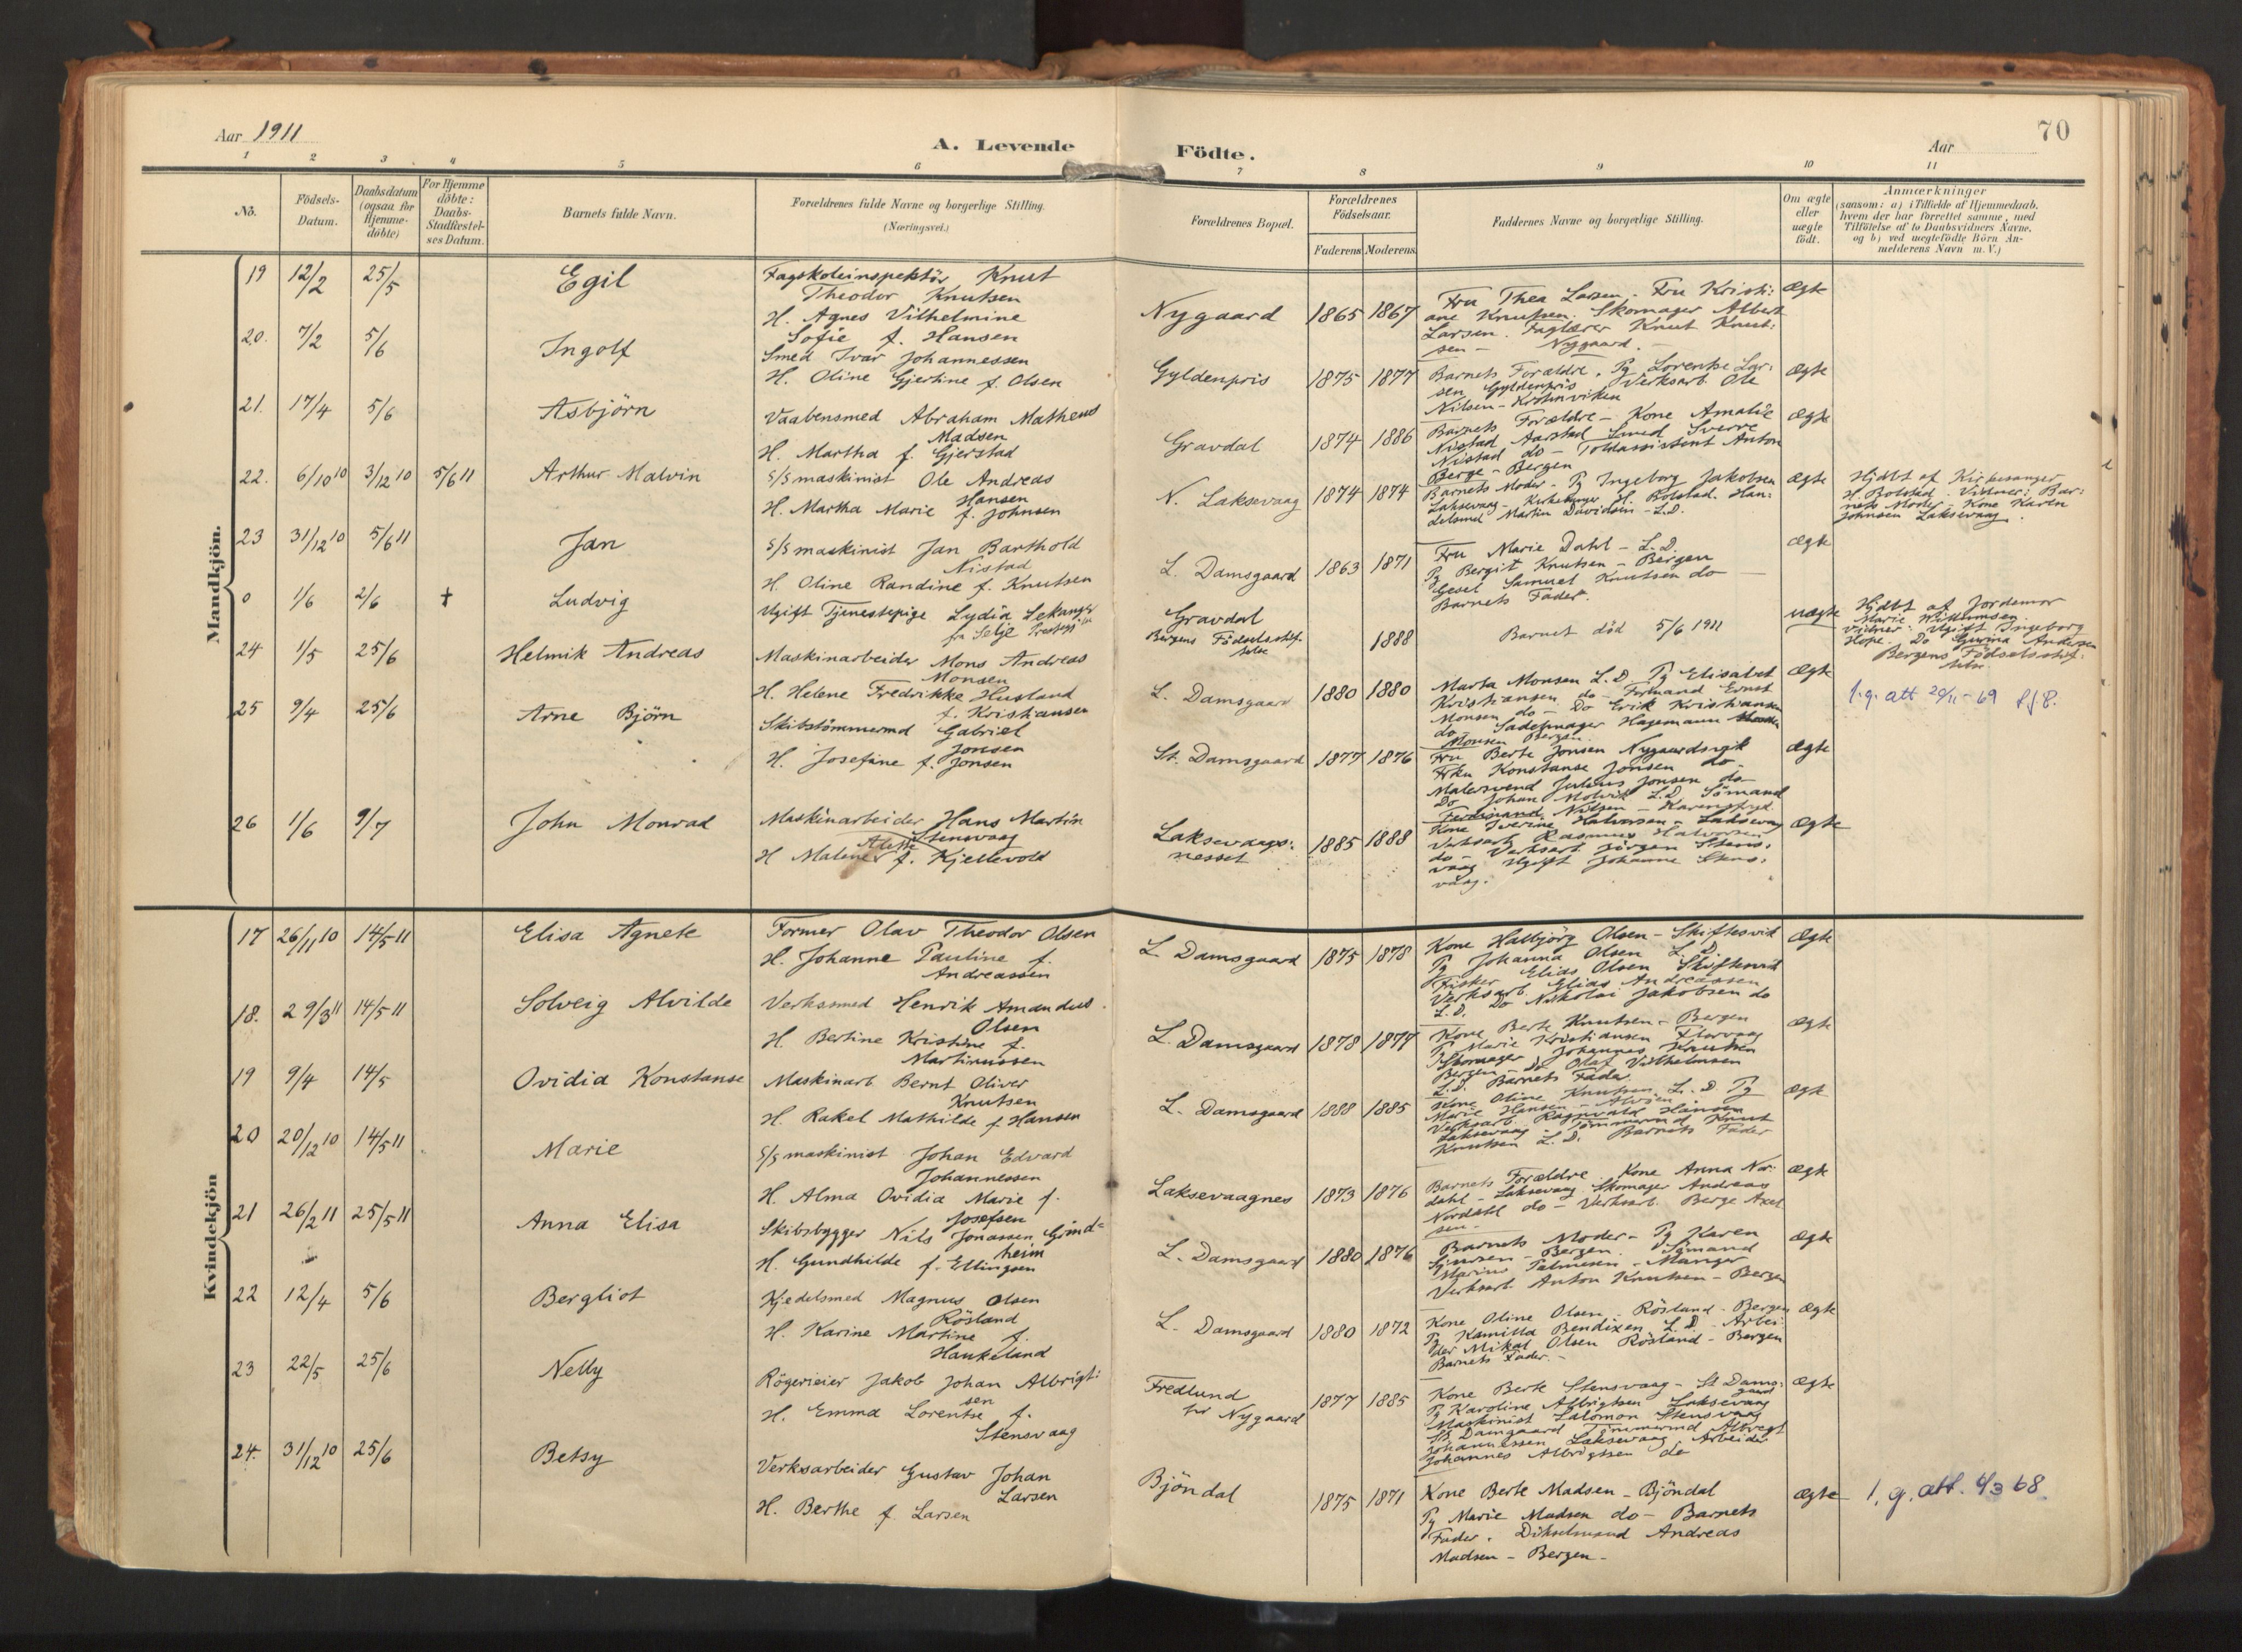 Aar 1911
A. Levende
Födte.
70
Aar
1 2 3 4 5 6 7 8 9 10 11
No.
Födsels-
Datum.
Daabsdatum
(ogsaa for
Hjemme-
döbte)
For Hjemme
döbte:
Daabs-
Stadfæstel-
ses Datum.
Barnets fulde Navn.
Forældrenes fulde Navne og borgerlige Stilling.
(Næringsvei.)
Forældrenes Bopæl.
Forældrenes
Födselsaar.
Faderens
Moderens
Faddernes Navne og borgerlige Stilling.
Om ægte
eller
uægte
födt.
Anmærkninger
(saasom: a) i Tilfælde af Hjemmedaab,
hvem der har forrettet samme, med
Tilföielse af to Daabsvidners Navne,
og b) ved uægtefödte Börn An-
melderens Navn m. V.)
Mandkjön.
19 12/2 25/5 Egil
Fagskoleinspektör Knut
Theodor Knutsen
H. Agnes Vilhelmine
Sofie f. Hansen
Nygaard 1865 1867
Fru Thea Larsen. Fru Kristi:
ane Knutsen. Skomager Albert
Larsen. Faglærer Knut Knut:
sen – Nygaard. –
ægte
20. 7/2 5/6 Ingolf
Smed Ivar Johannessen
H. Oline Gjertine f. Olsen
Gyldenpris 1875 1877
Barnets Forældre. Pg Lorentse Lar:
sen Gyldenpris Verksarb. Ole
Nilsen – Kristinviken
ægte
21. 17/4 5/6 Asbjörn
Vaabensmed Abraham Matheus
Madsen
H. Martha f. Gjerstad
Gravdal 1874 1886
Barnets Forældre – Kone Amalie
Nistad Aarstad Smed Sverre
Nistad do – Toldassistent Anton
Berge – Bergen
ægte
22. 6/10 10 3/12 10 5/6 11 Arthur Malvin
S/S maskinist Ole Andreas
Hansen
H. Martha Marie f. Johnsen
N. Laksevaag 1874 1874
Barnets Moder – Pg Ingeborg Jakobsen
Laksevaag – Kirkesanger H. Bolstad. Han:
delsmd Martin Davidsen – L.D.
ægte
Hjdbt af Kirkesanger
H. Bolstad. Vidner: Bar:
nets Moder. Kone Karen
Johnsen Laksevaag.
23 31/12 10 5/6 11 Jan
S/S maskinist Jan Barthold
Nistad
H. Oline Randine f. Knutsen
L. Damsgaard 1863 1871
Fru Marie Dahl – L.D.
Pg Bergit Knutsen – Bergen
Gesel Samuel Knutsen do –
Barnets Fader.
ægte
0 1/6 2/6 † Ludvig
Ugift Tjenestepige Lydia Sekanger
fra Selje
Gravdal
Bergens Födselsstif-
telse
1888
Barnet död 5/6 1911
uægte
Hjdbt af Jordemor
Marie Wilhelmsen
Vidner: Ugift Ingeborg
Hope. Do Gurina Andersen
Bergens Födselsstif-
telse
24 1/5 25/6 Helmik Andreas
Maskinarbeider Mons Andreas
Monsen
H. Helene Fredrikke Husland
f. Kristiansen
L. Damsgaard 1880 1880
Marta Monsen L.D Pg Elisabet
Kristiansen do – Formand Ernst
Monsen do – Do Erik Kristiansen
do – Sadelmager Hagemann
Monsen Bergen.
ægte
f.g. att 20/11-69
25 9/4 25/6 Arne Björn
Skibstömmermd Gabriel
Jonsen
H. Josefine f. Jonsen
St. Damsgaard 1877 1876
Fru Berte Jonsen Nygaardsvik
Frkn Konstanse Jonsen do –
Malersvend Julius Jonsen do
Do Johan Molvik L.D Sömand
Ferdinand Nilsen –
ægte
26 1/6 9/7 John Monrad
Maskinarbeider Hans Martin
Stensvaag
H Malene Alette f. Kjellevold
Laksevaags:
nesset
1885 1888
Kone Iverine Halvorsen – Laksevaag
Verksarb Rasmus Halvorsen
do – Verksarb Jörgen Stens:
vaag Ugift Johanne Stens:
vaag.
ægte
Kvindekjön
17 26/11 10 14/5 11 Elisa Agnete
Former Olav Theodor Olsen
H. Johanne Pauline f.
Andreassen
L. Damsgaard 1875 1878
Kone Halbjörg Olsen – Skiftesvik
Pg Johanna Olsen L.D.
Fisker Elias Olsen Skiftesvik
Verksarb. Elias Andreassen
L.D. Do Nikolai Jakobsen do
ægte
18. 29/3 11 14/5 11 Solveig Alvilde
Verksmed Henrik Amandus
Olsen
H. Bertine Kristine f.
Martinussen
L. Damsgaard 1878 1877
Kone Berte Knutsen – Bergen
Pg Marie Kristiansen Florvaag
Skomager Johannes Knutsen
Bergen – do Olaf Vilhelmsen
L.D. Barnets Fader
ægte
19 9/4 14/5 Ovidia Konstanse
Maskinarb Bernt Oliver
Knutsen
H. Rakel Mathilde f Hansen
L. Damsgaard 1888 1885
Kone Oline Knutsen L.D Pg
Marie Hansen – Alvöen
Verksarb. Ragnvald Hansen
Laksevaag Tömmermd Knut
Knutsen L.D. Barnets Fader
ægte
20 20/12 10 14/5 11 Marie
S/S maskinist Johan Edvard
Johannessen
H. Alma Ovidia Marie f.
Josefsen
Laksevaagnes 1873 1876
Barnets Forældre. Kone Anna Nor:
dahl – Laksevaag Skomager Andreas
Nordahl do – Verksarb. Berge Axel
sen –
ægte
21 26/2 11 25/5 11 Anna Elisa
Skibsbygger Nils Jonassen Grind=
heim
H. Gundhilde f. Ellingsen
L. Damsgaard 1880 1876
Barnets Moder – Pg Karen
– Bergen. Sömand
Marius – Manger
Verksarb Anton Knutsen – Bergen
ægte
22 12/4 5/6 Bergliot
Kjedelsmed Magnus Olsen
Rösland
H. Karine Martine f.
Haukeland
L. Damsgaard 1880 1872
Kone Oline Olsen Rösland – Bergen
Pg Kamilla Bendixen L.D – Arbei:
der Mikal Olsen Rösland – Bergen
Barnets Fader. –
ægte
23 22/5 25/6 Nelly
Rögerieier Jakob Johan Albrigt:
sen
H. Emma Lorentse f.
Stensvaag
Fredlund
pr Nygaard
1877 1885
Kone Berte Stensvaag – St Dams:
gaard
Pg Karoline Albrigtsen Laksevaag
Maskinist Salomon Stensvaag
St. Damgaard Tömmermd Albregt
Johannessen Laksevaag Arbeider
Johannes Albrigtsen do
ægte
24. 31/12 10 25/6 Betsy
Verksarbeider Gustav Johan
Larsen
H. Berthe f Larsen
Bjöndal 1875 1871
Kone Berte Madsen – Bjöndal
Pg Marie Madsen do – Barnets
Fader. Dikselmand Andreas
Madsen – Bergen –
ægte
1. g. att. 4/3 68.